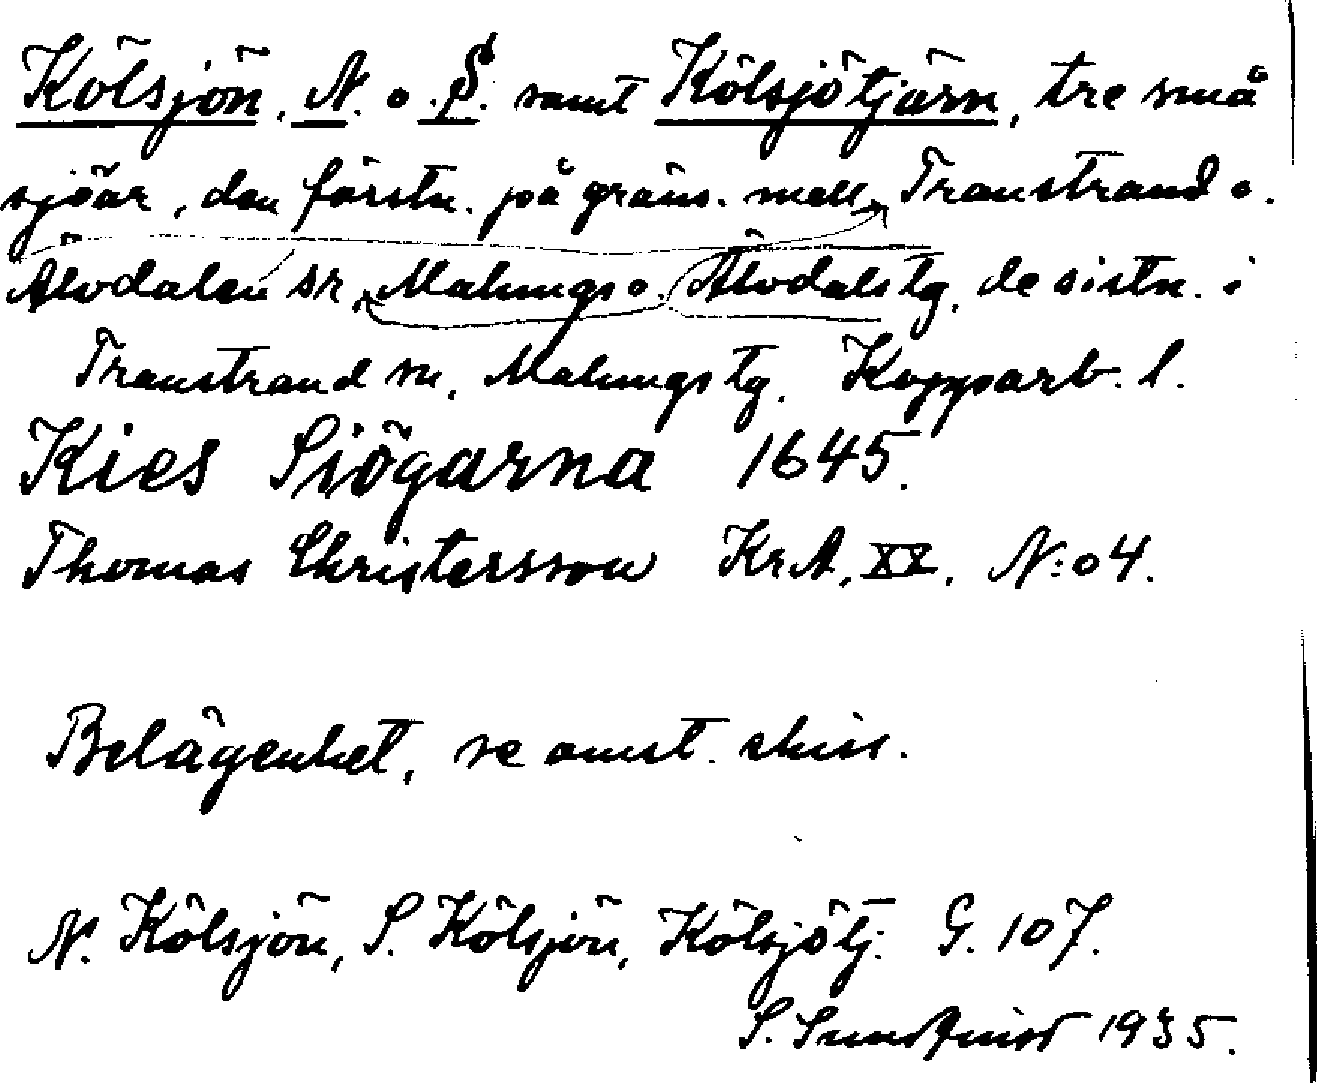 Kölsjön, N. o. S. samt Kölsjötjärn, tre små
sjöar, den förstn. på gräns. mell. Transtrand o.
Älvdalen sn, Malungs o. Älvdals tg, de sistn. i
Transtrand sn, Malungs tg. Kopparb. l.
Kies Siögarna 1645.
Thomas Christersson Kr.A. XX. N:o 4.
Belägenhet, se omst. skiss.
N. Kölsjön, S. Kölsjön, Kölsjötj. G. 107.
S. Sundquist 1935.